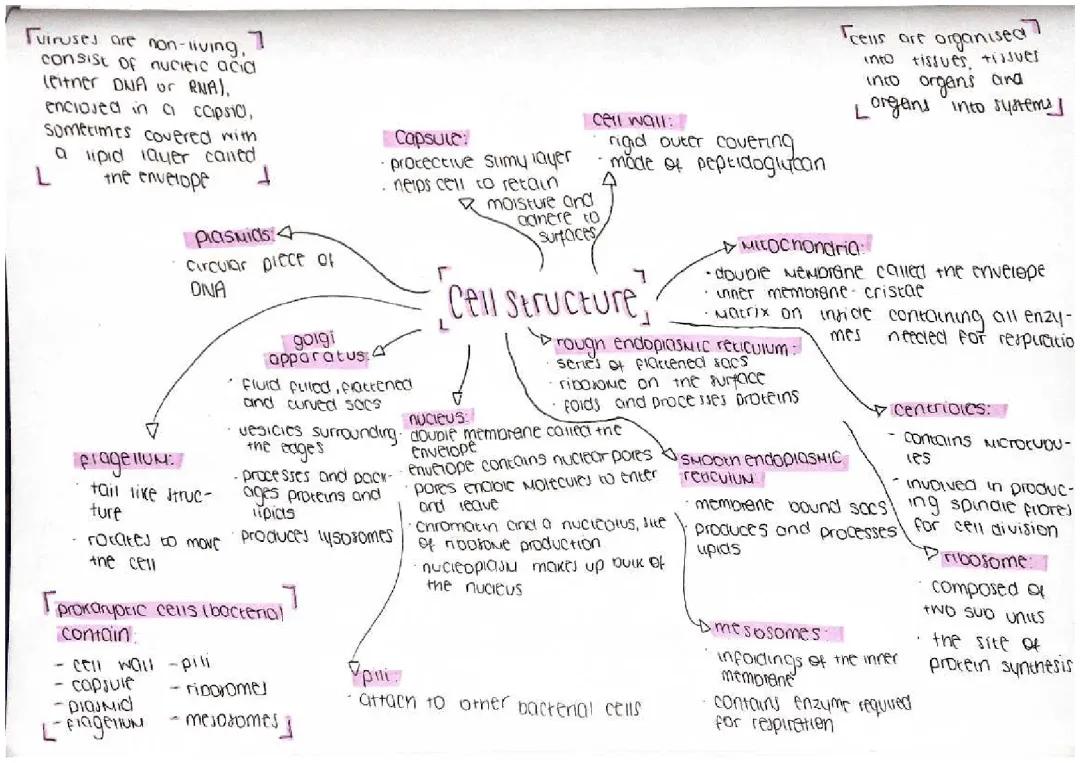 viruses are non-living,
consist of nucleic acid
(either DNA or RNA),
enclosed in a capsid,
sometimes covered with
a lipid layer called
the envelope
cells are organised
into tissues, tissues
into organs and
organs into systems
capsule:
· protective slimy layer
· helps cell to retain
moisture and
adhere to
surfaces
cell wall:
· rigid outer covering
· made of peptidoglycan
plasmids:
· circular piece of
DNA
Cell structure
mitochondria:
· double membrane called the envelope
· inner membrane - cristae
· matrix on inside containing all enzy-
mes needed for respiratio
golgi
apparatus:
· fluid filled, flattened
and curved sacs
· vesicles surrounding
the edges
· processes and pack-
ages proteins and
lipids
· produces lysosomes
rough endoplasmic reticulum:
· series of flattened sacs
· ribosome on the surface
· folds and processes proteins
nucleus:
· double membrane called the
envelope
· envelope contains nuclear pores
· pores enable molecules to enter
and leave
· chromatin and a nucleolus, site
of ribosome production
· nucleoplasm makes up bulk of
the nucleus
smooth endoplasmic
reticulum:
· membrane bound sacs
· produces and processes
lipids
centrioles:
· contains microtubu-
les
· involved in produc-
ing spindle fibres
for cell division
flagellum:
· tail like struc-
ture
· rotates to move
the cell
ribosome:
· composed of
two sub units
· the site of
protein synthesis
prokaryotic cells (bacteria)
contain:
- cell wall - pili
- capsule - ribosomes
- plasmid
- flagellum - mesosomes
pili:
· attach to other bacterial cells
mesosomes:
· infoldings of the inner
membrane
· contains enzyme required
for respiration